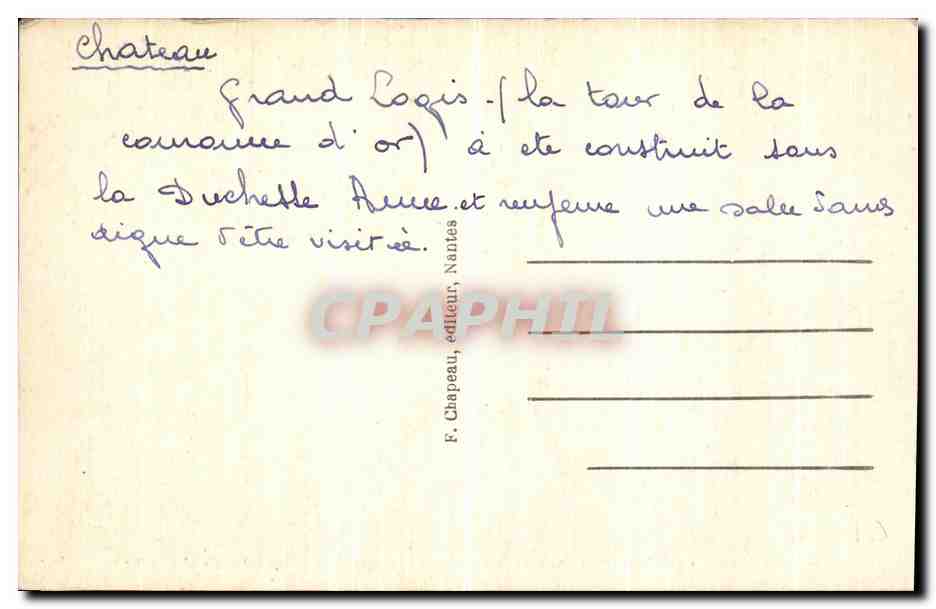 Chateau
Grand Logis - (la tour de la
couronne d'or) à ete construit sous
la Duchesse Anne et renferme une salle
digne d'être visitée.
F. Chapeau, éditeur, Nantes
CPAPHIL